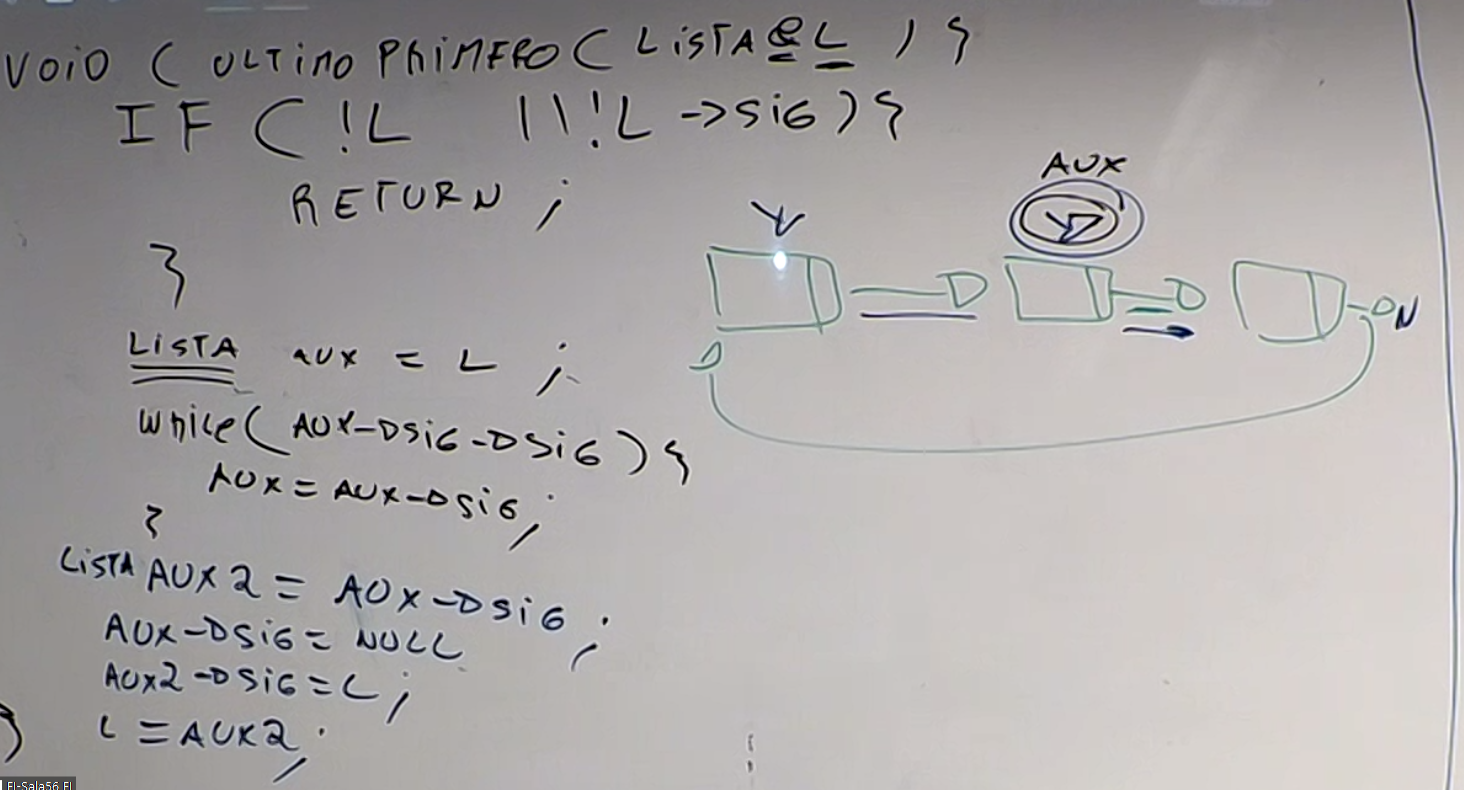 VOID ( ULTIMO PRIMERO ( LISTA & L ) {
IF ( !L || !L ->SIG ) {
RETURN ;
}
LISTA AUX = L ;
while ( AUX->SIG->SIG ) {
AUX = AUX->SIG ;
}
LISTA AUX2 = AUX->SIG ;
AUX->SIG = NULL
AUX2->SIG = L ;
L = AUX2 ;
}
AUX
N
FI-Sala56 FI